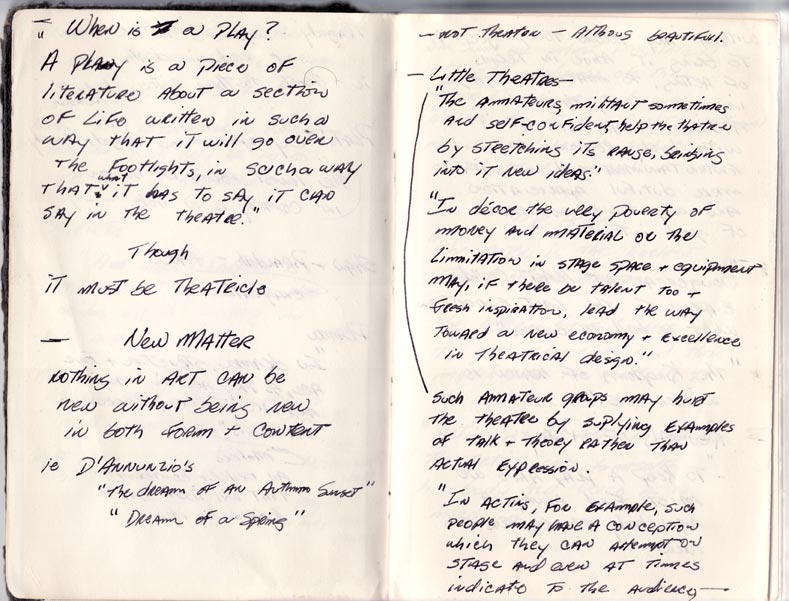 " When is a Play?
A Play is a piece of
literature about a section
of life written in such a
way that it will go over
the footlights, in such a way
that what it has to say it can
say in the theatre."
Though
it must be theatricle
— New Matter
nothing in ART can be
new without being new
in both form + content
ie D'Annunzio's
"The dream of an Autumn Sunset"
"Dream of a Spring"
— not theater — Althous beautiful.
— Little Theatres —
"The Amateurs, militant sometimes
and self-confident, help the theatre
by stretching its range, bringing
into it new ideas."
"In décor the very poverty of
money and material or the
limmitation in stage space + equipment
may, if there be talent too +
fresh inspiration, lead the way
toward a new economy + excellence
in theatrical design."
Such amateur groups may hurt
the theatre by suplying examples
of talk + theory rather than
actual expression.
"In acting, for example, such
people may have a conception
which they can attempt on
stage and even at times
indicate to the audience —